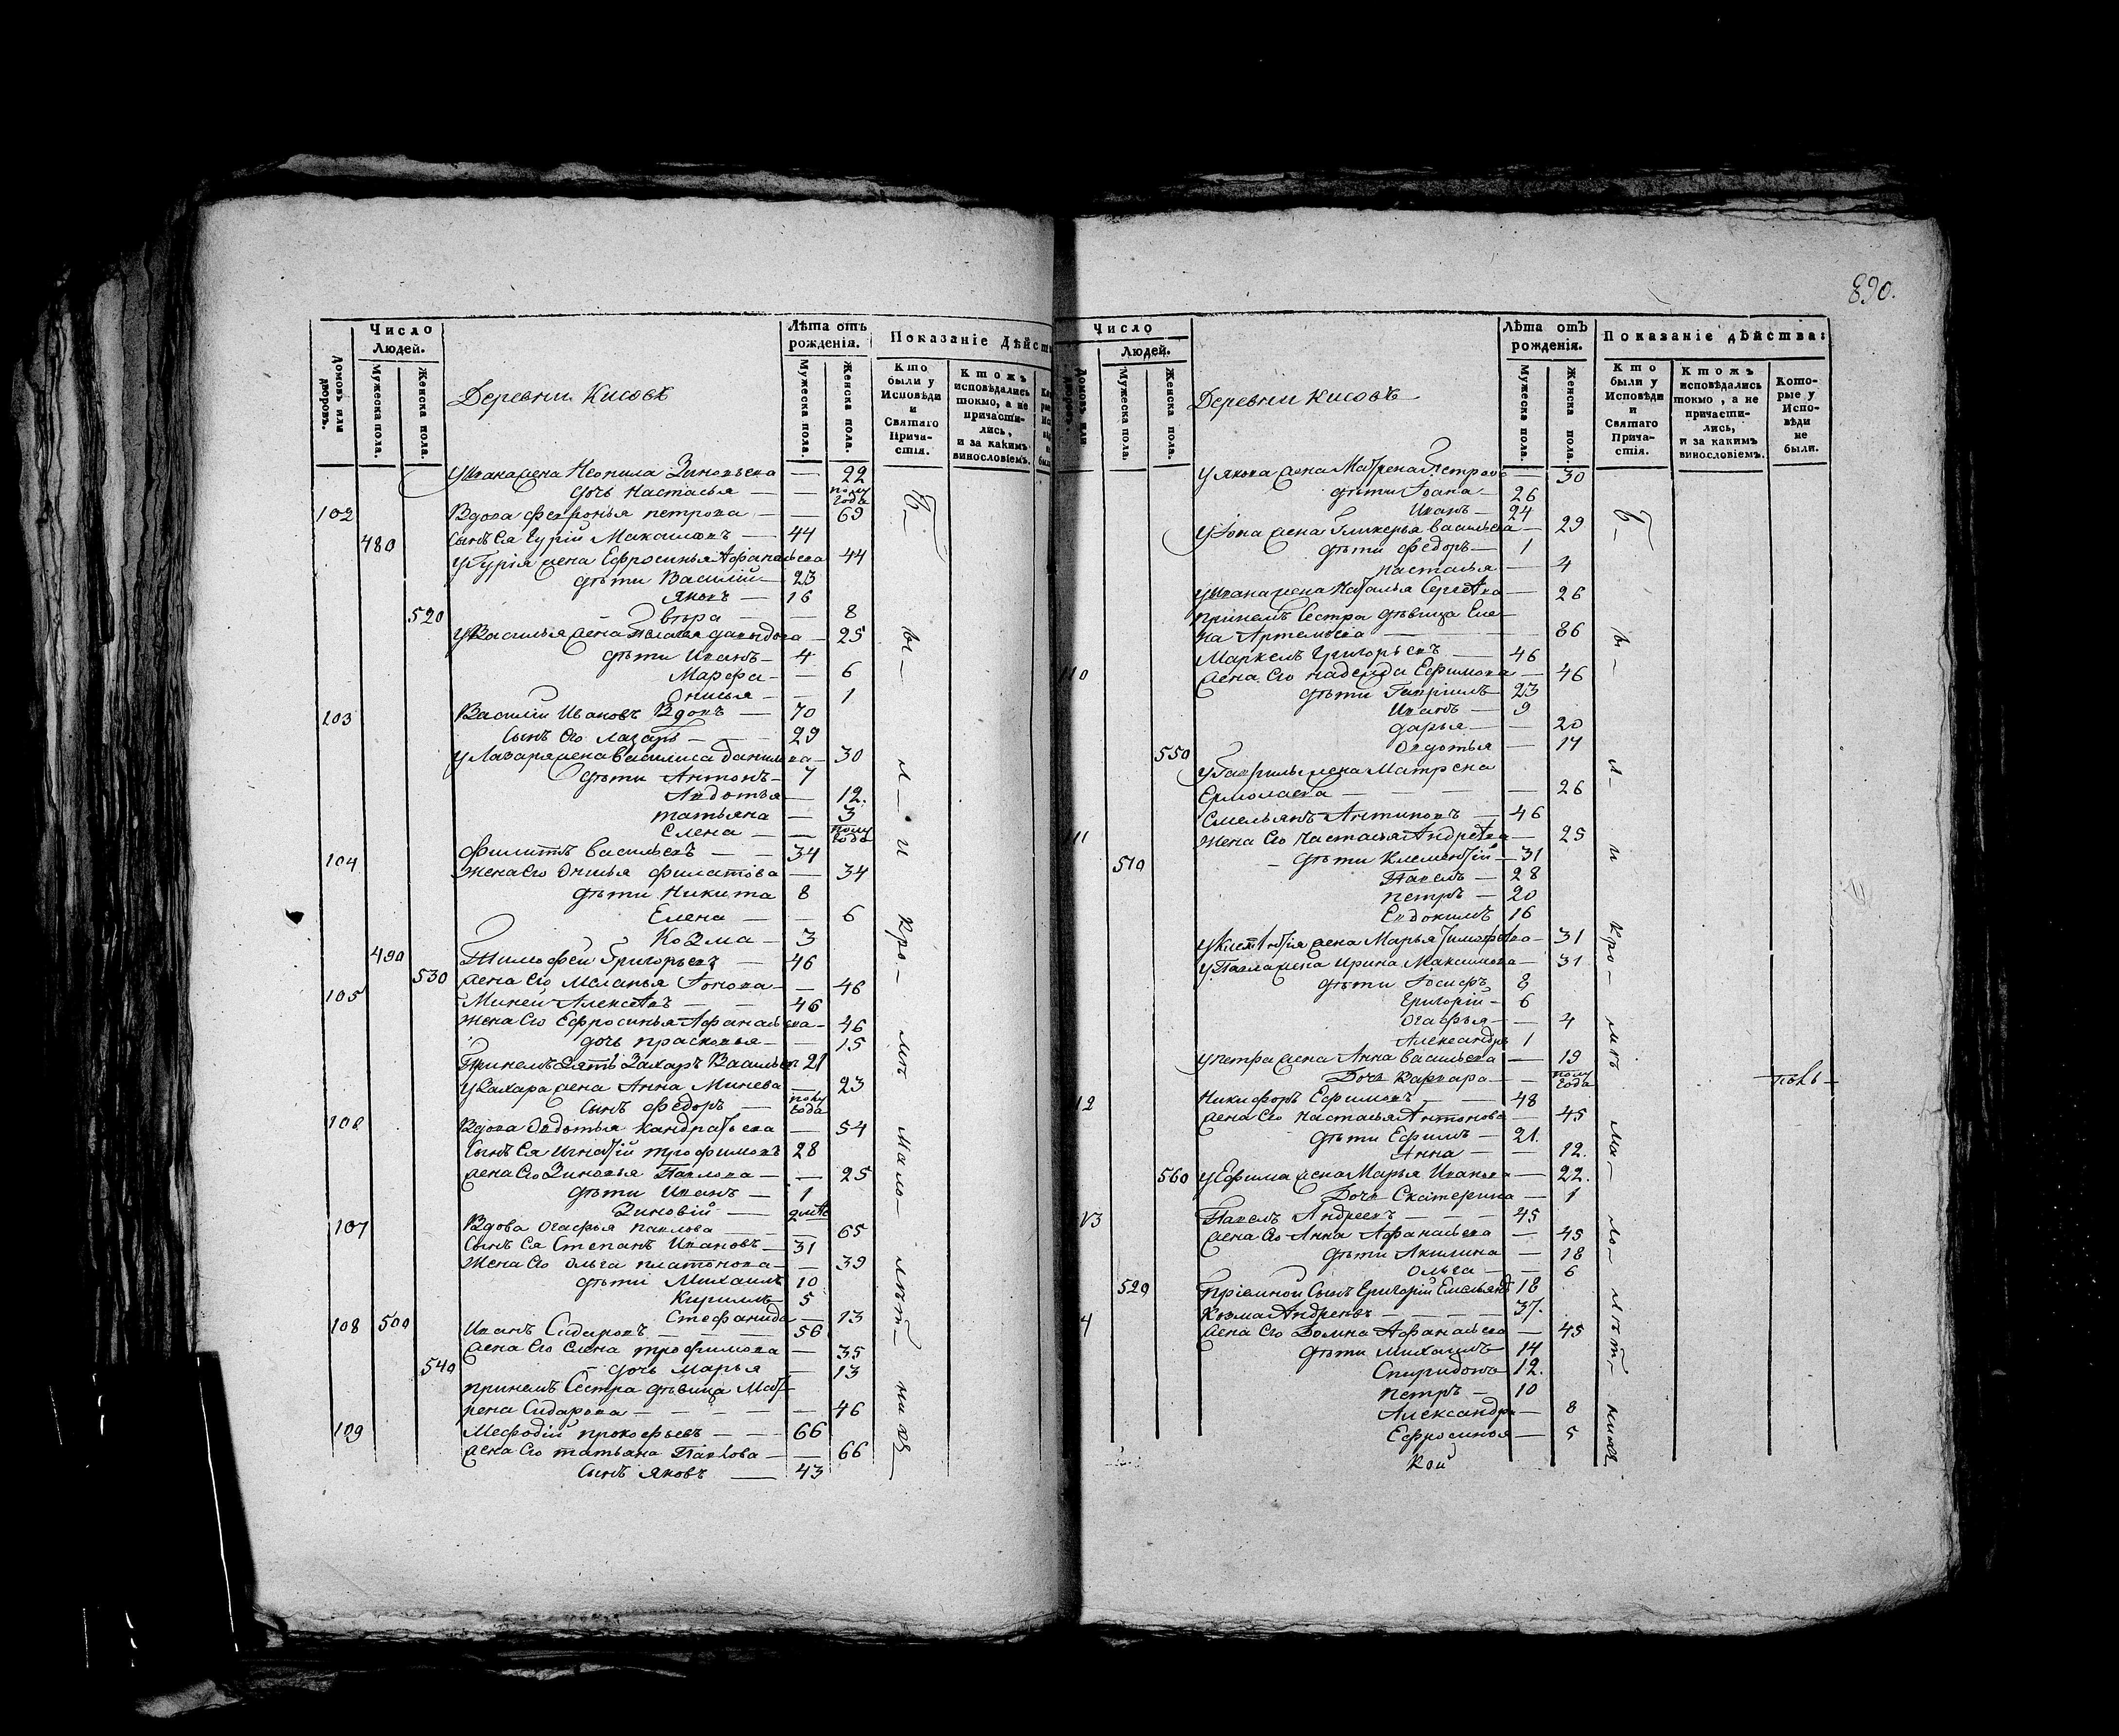 Число
Людей.
Домовъ или дворовъ.
Мужеска пола.
Женска пола.
Деревни Кисовъ
Лѣта отъ рожденія.
Мужеска пола.
Женска пола.
Показаніе Дѣйств
Кто были у Исповѣди и Святаго Прича-стія.
Ктожъ исповѣдались токмо, а не причасти-лись, и за какимъ винословіемъ.
У Ивана жена Неонила Зиновьева — 22
дочь Настасья — — полу года
102 Вдова Февронья Петрова — — 69
480 Сынъ Ея Гурій Макаловъ — 44
У Гурія жена Ефросинья Афанасьева 44
дѣти Василій — 23
Яковъ — 16
520 Вѣра — — 8
У Василья жена Пелагея Давыдова — 25
дѣти Иванъ — 4
Марфа — — 6
Онисья — — 1
103 Василій Ивановъ Вдовъ — 70
Сынъ Его Лазарь — 29
У Лазаря жена Василиса Данилова — 30
дѣти Антонъ — 7
Авдотья — 12.
Татьяна — 3
Елена — — полу года
104 Филиппъ Васильевъ — — 34
Жена Его Онисья Филатова — 34
дѣти Никита 8
Елена — — 6
Козма — 3
490 Тимофей Григорьевъ — 46
530 жена Его Меланья Іонова — — 46
105 Миней Алексѣевъ — — 46
Жена Его Ефросинья Афанасьева — 46
дочь Прасковья — — 15
Принемъ Зять Захаръ Васильевъ 21
У Захара жена Анна Минева — 23
Сынъ Федоръ — полу года
106 Вдова Авдотья Кандратьева — 54
Сынъ Ея Игнатій Трофимовъ 28
жена Его Зиновья Павлова — — 25
дѣти Иванъ — 1
Зиновій —
107 Вдова Огафья Павлова — 65
Сынъ Ея Степанъ Ивановъ — 31
Жена Его Ольга Платонова — — 39
дѣти Михаилъ 10
Кирилъ — 5
Стефанида — 13
108 500 Иванъ Сидоровъ — — — 56
жена Его Елена Трофимова — 35
540 дочь Марья — 13
принемъ Сестра дѣвица Мат-
рена Сидорова — — — — 46
109 Мефодій Прокофьевъ — — 66
жена Его Татьяна Павлова — — 66
Сынъ Яковъ — 43
890.
Число
Людей.
Мужеска пола.
Женска пола.
Деревни Кисовъ
Лѣта отъ рожденія.
Мужеска пола.
Женска пола.
Показаніе дѣйства:
Кто были у Исповѣди и Святаго Прича-стія.
Ктожъ исповѣдались токмо, а не причасти-лись, и за какимъ винословіемъ.
Кото-рые у Испо-вѣди не были.
У Якова жена Матрена Петрова 30
дѣти Іоана — 26
Иванъ — 24
У Іона жена Гликерья Васильева — 29
дѣти Федоръ — 1
Настасья — 4
У Ивана жена Наталья Сергѣева — 26
принемъ Сестра дѣвица Еле-
на Артемьева — — — 86
110 Маркелъ Григорьевъ — 46
жена Его Надежда Ефимова — 46
дѣти Гавріилъ 23
Иванъ — 9
Дарья — — 20
550 Овдотья — 14
У Гаврилы жена Матрена
Ермолаева — — — — 26
111 Емельянъ Антиповъ — 46
Жена Его Настасья Андрѣева — 25
510 — дѣти Клементій — 31
Павелъ — 28
Петръ — 20
Евдокимъ 16
У Клементія жена Марья Тимофѣева — 31
У Павла жена Ирина Максимова — 31
дѣти Іосифъ 8
Григорій — 6
Огафья — — 4
Александръ 1
У Петра жена Анна Васильева — 19
Дочь Варвара — — полу года
12 Никифоръ Ефимовъ — — 48
жена Его Настасья Антонова — 45
дѣти Ефимъ — 21.
Анна — — 12.
560 У Ефима жена Марья Иванова — 22.
Дочь Екатерина — 1
13 Павелъ Андреевъ — — — 45
жена Его Анна Афанасьева — 45
дѣти Акилина — 18
Ольга — — 6
520 Пріемной Сынъ Григорій Емельяновъ 18
4 Козма Андреевъ — — — — 37.
жена Его Домна Афанасьева — 45
дѣти Михаилъ 14
Спиридонъ 12.
Петръ — 10
Александра — 8
Ефросинья — 5
Кои